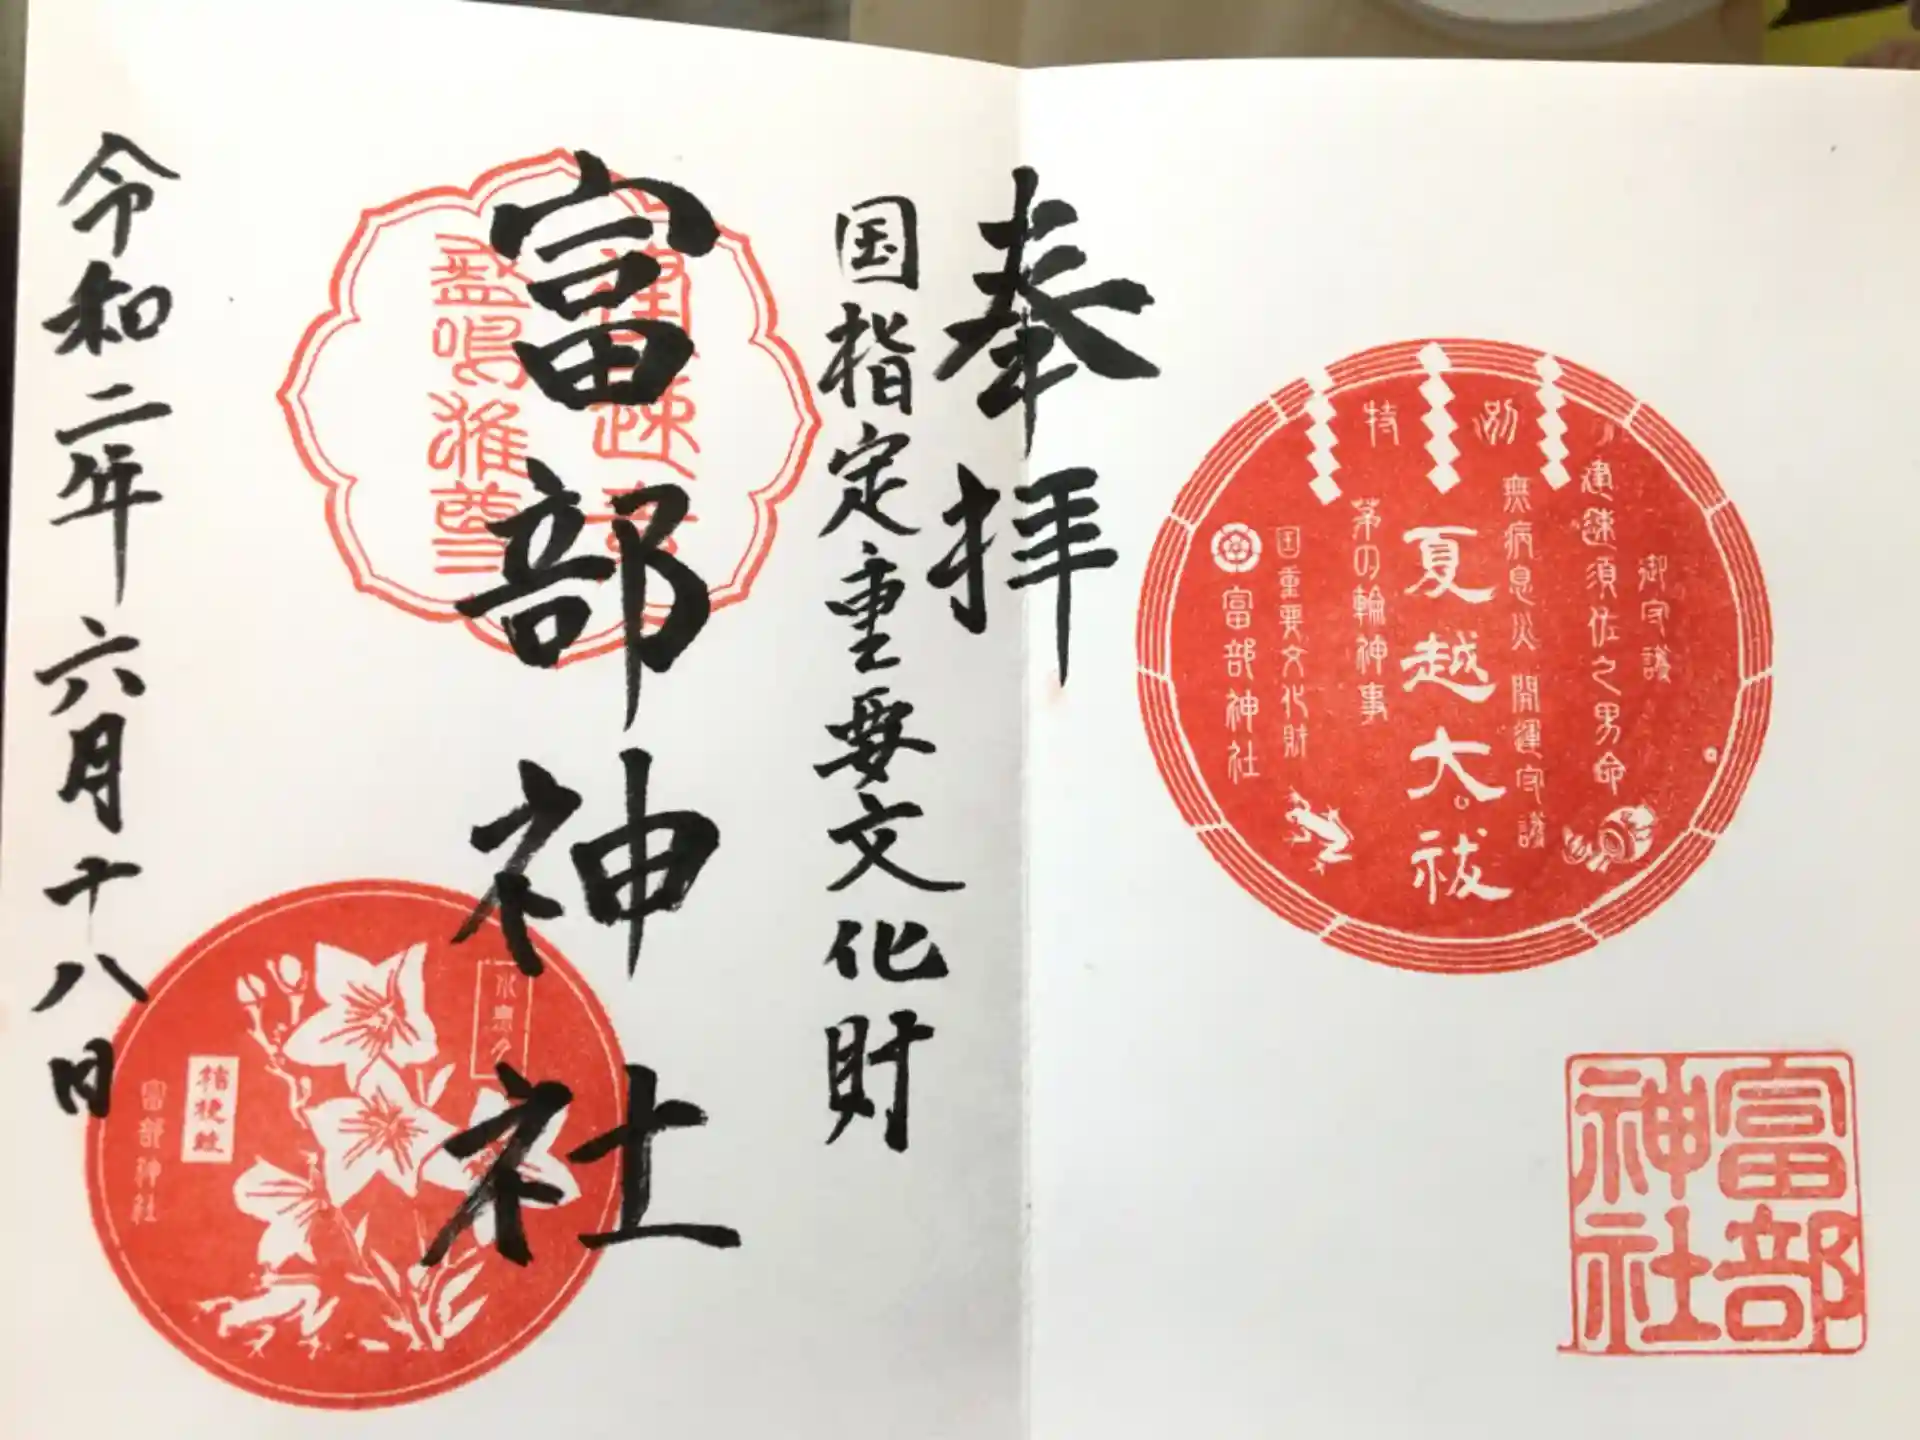 奉拝
国指定重要文化財
富部神社
令和二年六月十八日
特別
御守護
建速須佐之男命
無病息災 開運守護
夏越大祓
茅の輪神事
国重要文化財
富部神社
富部
神社
盞鳴
雅尊
桔梗
富部神社